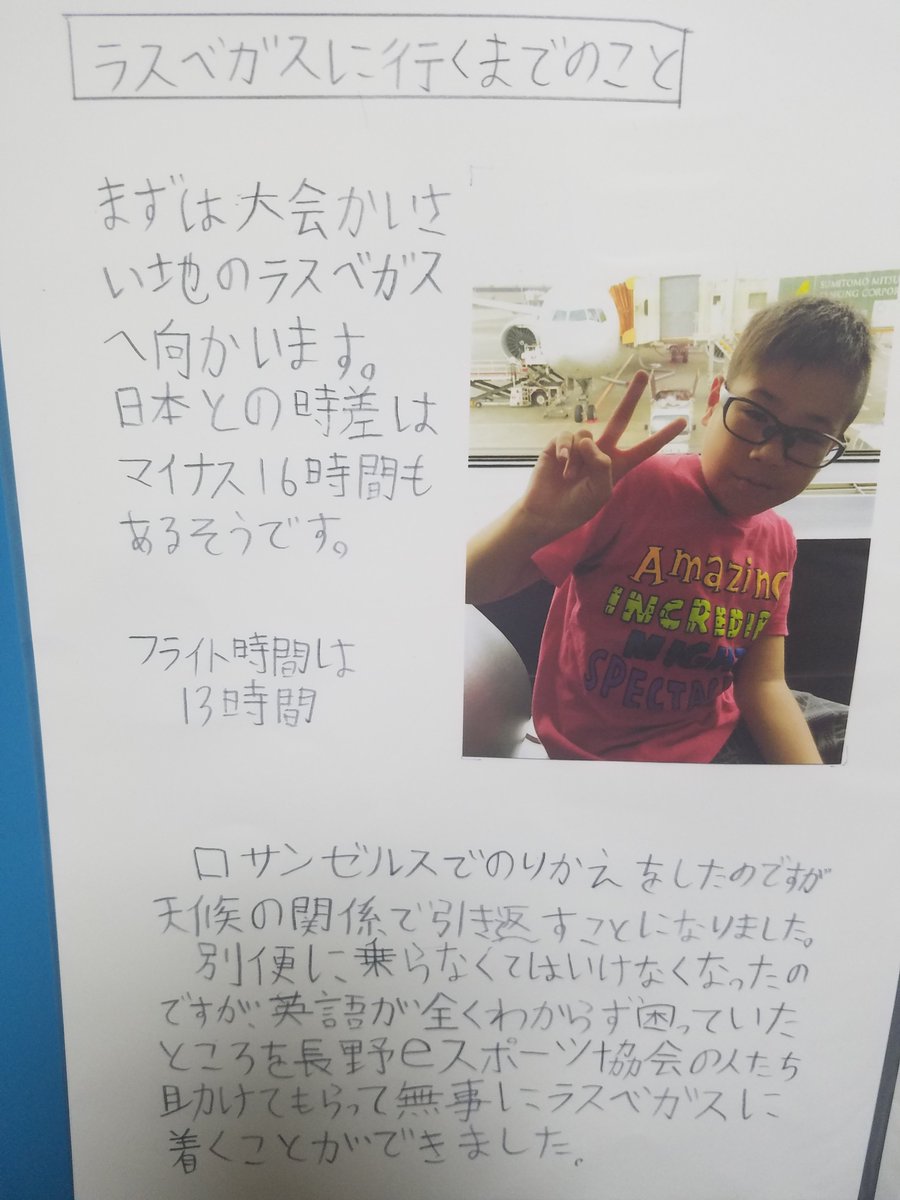 ラスベガスに行くまでのこと
まずは大会かいさ
い地のラスベガス
へ向かいます。
日本との時差は
マイナス16時間も
あるそうです。
SUMITOMO MITSU
CORPO
Amazing
INCREDI
MIGH
SPECTAC
フライト時間は
13時間
ロサンゼルスでのりかえをしたのですが
天候の関係で引き返すことになりました。
別便に乗らなくてはいけなくなったの
ですが、英語が全くわからず困っていた
ところを長野eスポーツ協会の人たち
助けてもらって無事にラスベガスに
着くことができました。